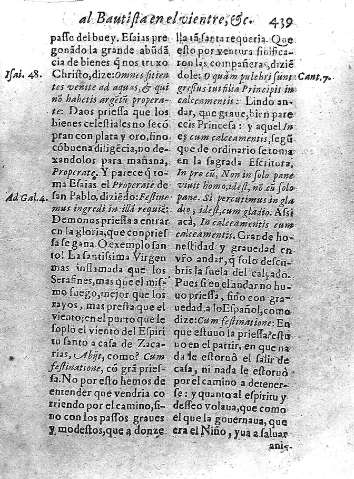 al Bautista en el vientre, &c. 439
passo del buey. Esaias pre-
gonãdo la grande abũdã
cia de bienes q̃ nos truxo
Isai. 48.
Christo, dize: Omnes sitien
tes venite ad aquas, & qui
nõ habetis argẽtũ propera-
te: Daos priessa que los
bienes celestiales no se cõ
pran con plata y oro, sino cõ
buena diligẽcia, no de-
xandolos para mañana,
Properate. Y pareceq̃ to-
ma Esaias el Properate de
Ad Gal. 4.
san Pablo, diziẽdo: Festine-
mus ingredi in illã requiẽ:
Demonos priessa a entrar
en la gloria, que con pries-
sa se gana. O exemplo san-
to! La santissima Virgen
mas inflamada que los
Serafines, mas que el mis-
mo fuego, mejor que los
rayos, mas presta que el
viento: en el punto que le
soplò el viento del Espiri
tu santo a casa de Zaca-
rias, Abijt, como? Cum
festinatione, cõ grã pries-
sa. No por esto hemos de
entender que vendria co-
rriendo por el camino, si-
no con los passos graues
y modestos, que a donze
lla tã santa requeria. Que
esto por ventura sinifica-
rõ las compañeras, diziẽ
dole: O quàm pulchri sunt
Cant. 7.
gressus tui filia Principis in
calceamentis: Lindo an-
dar, que graue, bien pare-
ceis Princesa: y aquel In
es cum calceamentis, seg͂
que de ordinario se toma
en la sagrada Escritura,
In pro cũ, Non in solo pane
viuit homo, idest, nõ cũ solo
pane. Si percutimus in gla
dio, idest, cum gladio. Assi
acà, In calceamentis cum
calceamentis. Grande ho-
nestidad y grauedad en
vr̃o andar, q̃ solo descu-
bris la suela del calçado.
Pues si en el andar no hu-
uo priessa, sino con gra-
uedad a lo Español, como
dize: Cum festinatione: En
que estuuo la priessa? estu
uo en el partir, en que na
da le estoruò el salir de
casa, ni nada le estoruò
por el camino a detener-
se: y quanto al espiritu y
desseo volaua, que como
el que la gouernaua, que
era el Niño, yua a saluar
anis-